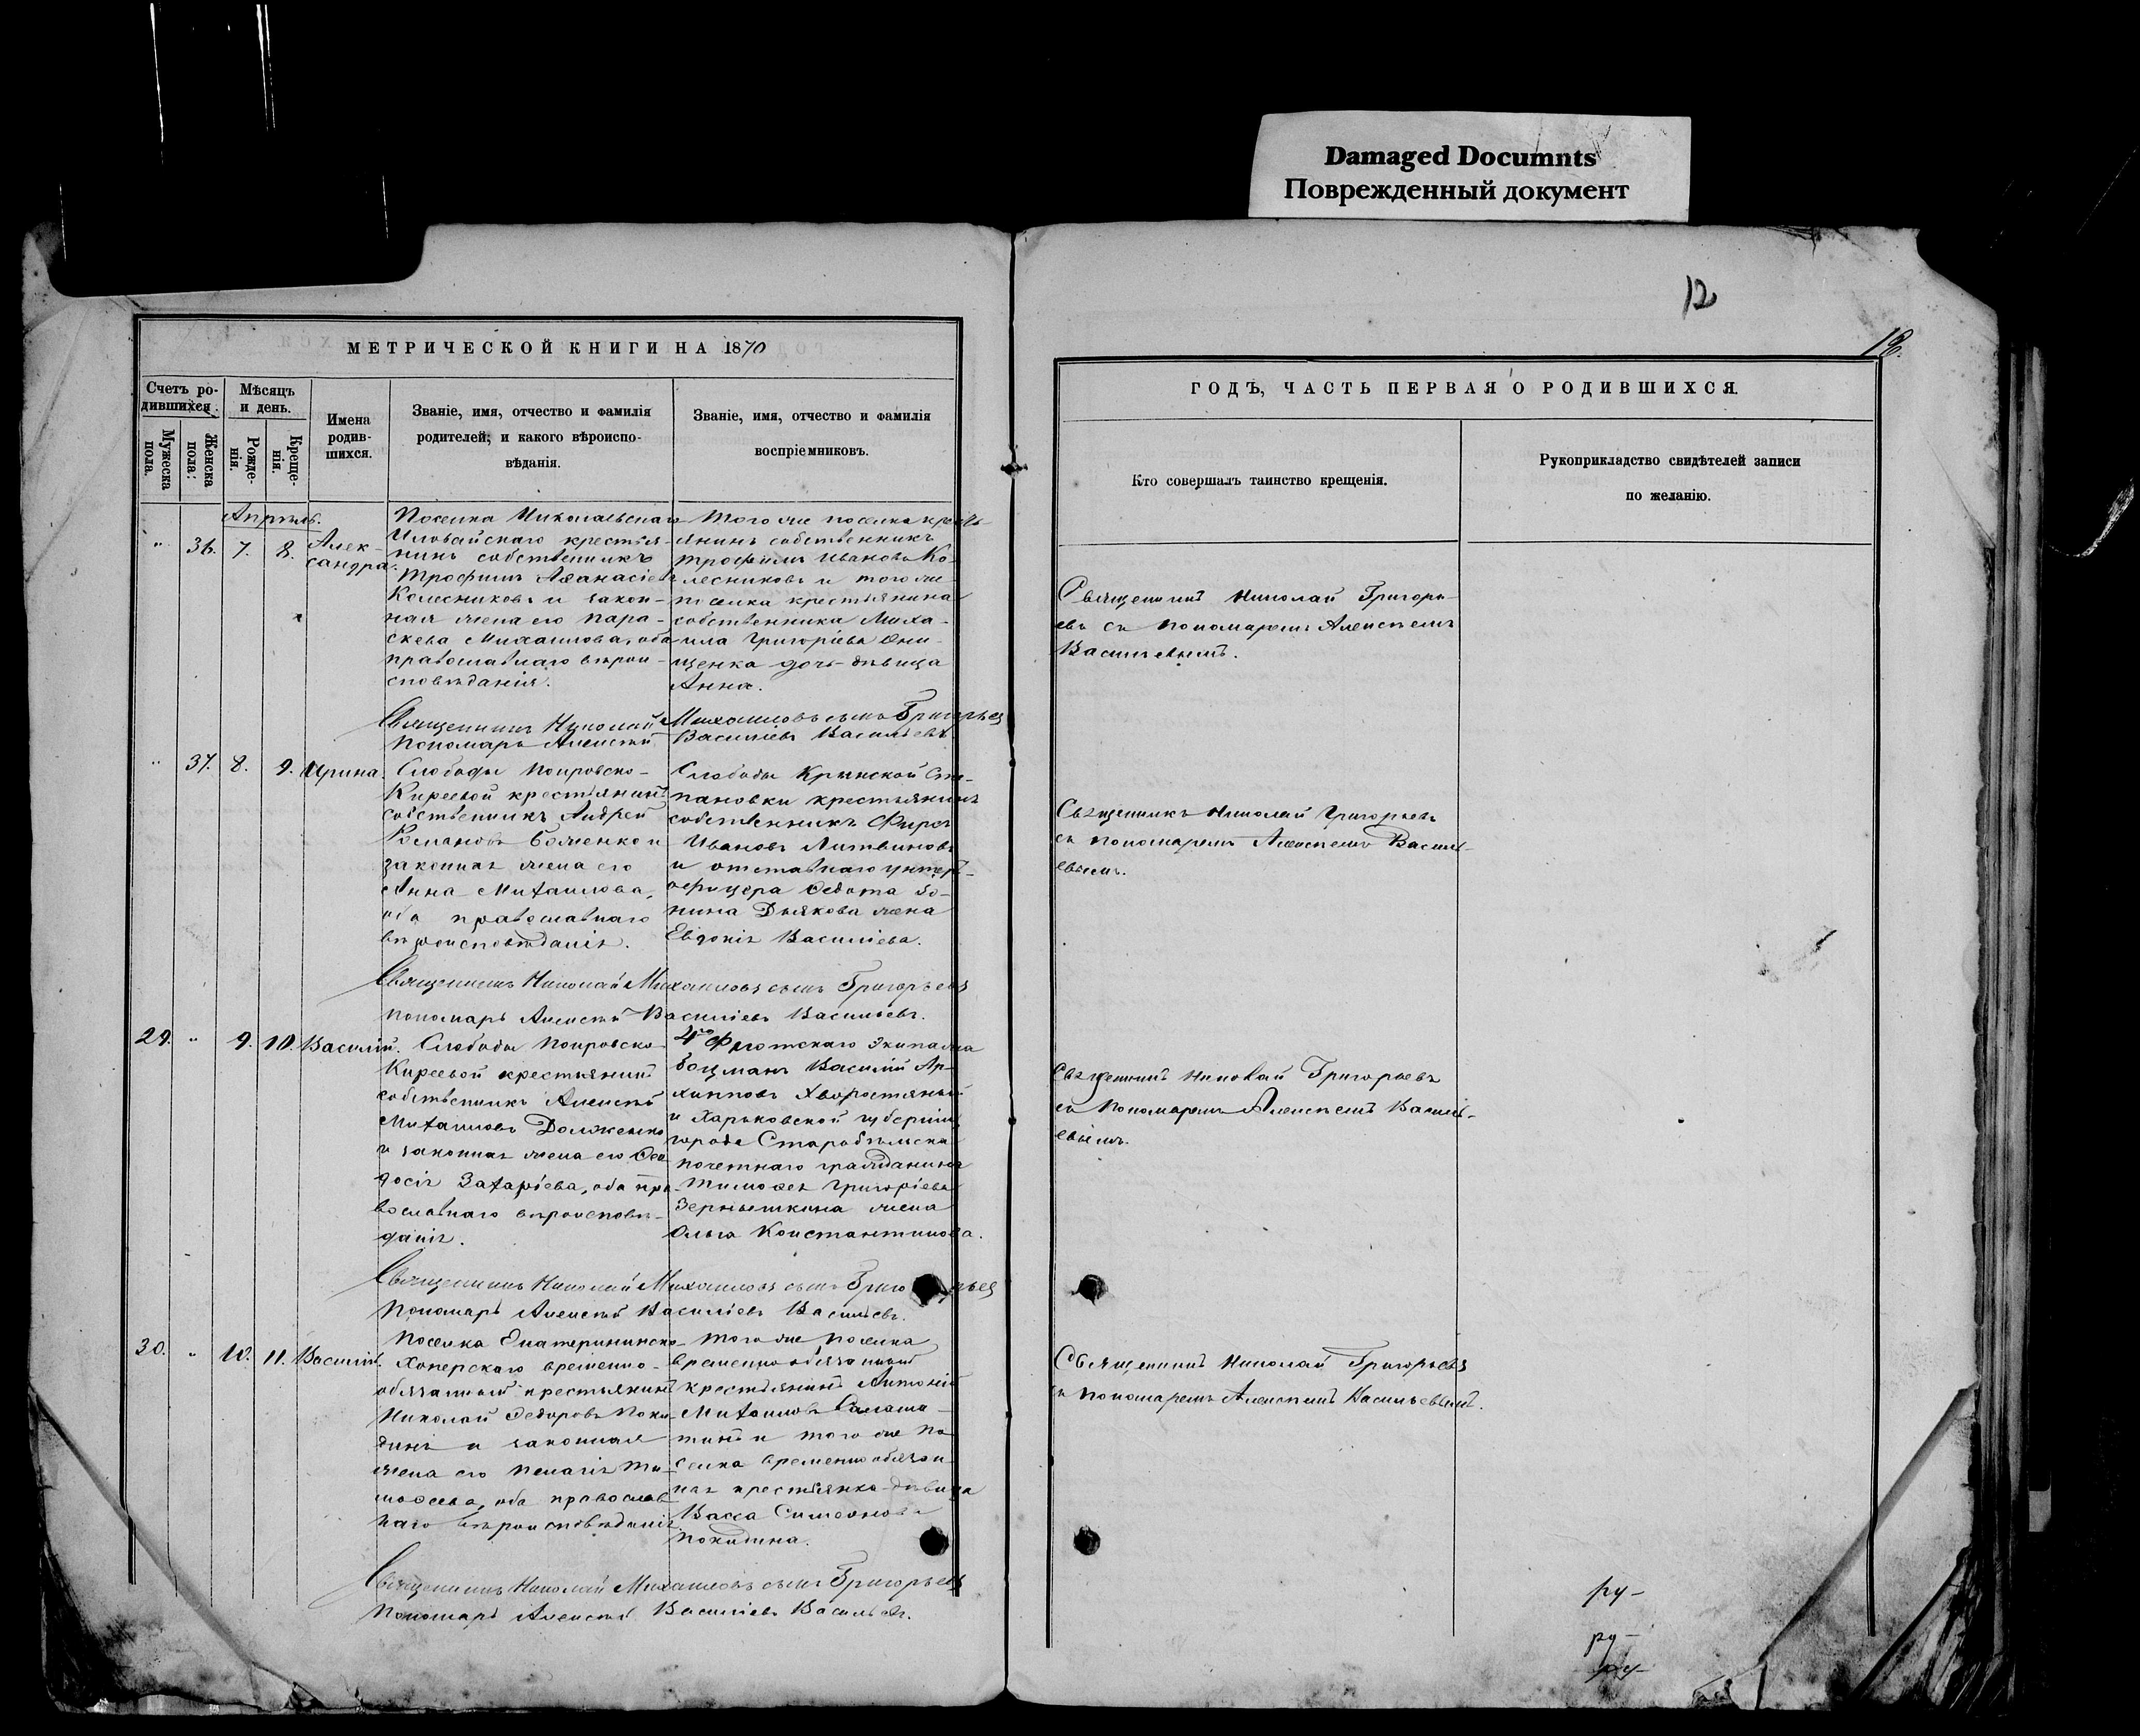 Damaged Documnts
Поврежденный документ
12
МЕТРИЧЕСКОЙ КНИГИ НА 1870
Счетъ ро-
дившихся.
Мѣсяцъ
и день.
Мужеска
пола.
Женска
пола.
Рожде-
нія.
Креще-
нія.
Имена
родив-
шихся.
Званіе, имя, отчество и фамилія
родителей, и какого вѣроиспо-
вѣданія.
Званіе, имя, отчество и фамилія
воспріемниковъ.
Апрѣль.
" 36. 7. 8. Алек-
сандра.
Поселка Николаевскаго
Иловайскаго крестья-
нинъ собственникъ
Трофимъ Аѳанасіевъ
Колесниковъ и закон-
ная жена его Пара-
скева Михаилова, оба
православнаго вѣрои-
сповѣданія.
Того же поселка кресть-
янинъ собственникъ
Трофимъ Ивановъ Ко-
лесниковъ и того же
поселка крестьянина
собственника Миха-
ила Григоріева
щенка дочь дѣвица
Анна.
Священникъ Николай Михаиловъ сынъ Григорьевъ
Пономарь Алексѣй Василіевъ Васильевъ.
" 37. 8. 9. Ирина.
Слободы Покровско-
Киреевой крестьянинъ
собственникъ Андрей
Романовъ Боженко и
законная жена его
Анна Михаилова,
оба православнаго
вѣроисповѣданія.
Слободы Крынской Сте-
пановки крестьянинъ
собственникъ Фирсъ
Ивановъ Литвиновъ
и отставнаго унтеръ-
офицера Ѳедота Зо-
нина Дьякова жена
Евдокія Василіева.
Священникъ Николай Михаиловъ сынъ Григорьевъ
Пономарь Алексѣй Василіевъ Васильевъ.
29. " 9. 10. Василій.
Слободы Покровско-
Киреевой крестьянинъ
собственникъ Алексѣй
Михаиловъ Долженко
и законная жена его Ѳео-
досія Захаріева, оба пра-
вославнаго вѣроисповѣ-
данія.
4го Флотскаго Экипажа
боцманъ Василій Ар-
хиповъ Хворостяный
и Харьковской губерніи
города Старобѣльска
почетнаго гражданина
Тимоѳея Григоріева
Зернышкина жена
Ольга Константинова.
Священникъ Николай Михаиловъ сынъ Григорьевъ
Пономарь Алексѣй Василіевъ Васильевъ.
30. " 10. 11. Василій.
Поселка Екатерининско-
Хоперскаго временно-
обязанный крестьянинъ
Николай Ѳедоровъ Поки-
динъ и законная
жена его Пелагія Ти-
моѳеева, оба православ-
наго вѣроисповѣданія.
Того же поселка
временнообязанный
крестьянинъ Антоній
Михаиловъ Салама-
тинъ и того же по-
селка временнообязан-
ная крестьянка дѣвица
Васса Симеонова
Покидина.
Священникъ Николай Михаиловъ сынъ Григорьевъ
Пономарь Алексѣй Василіевъ Васильевъ.
ГОДЪ, ЧАСТЬ ПЕРВАЯ О РОДИВШИХСЯ.
Кто совершалъ таинство крещенія.
Рукоприкладство свидѣтелей записи
по желанію.
Священникъ Николай Григорь-
евъ съ пономаремъ Алексѣемъ
Васильевымъ.
Священникъ Николай Григорьевъ
съ пономаремъ Алексѣемъ Василь-
евымъ.
Священникъ Николай Григорьевъ
съ пономаремъ Алексѣемъ Василь-
евымъ.
Священникъ Николай Григорьевъ
съ пономаремъ Алексѣемъ Васильевымъ.
ру-
ру-
ру-